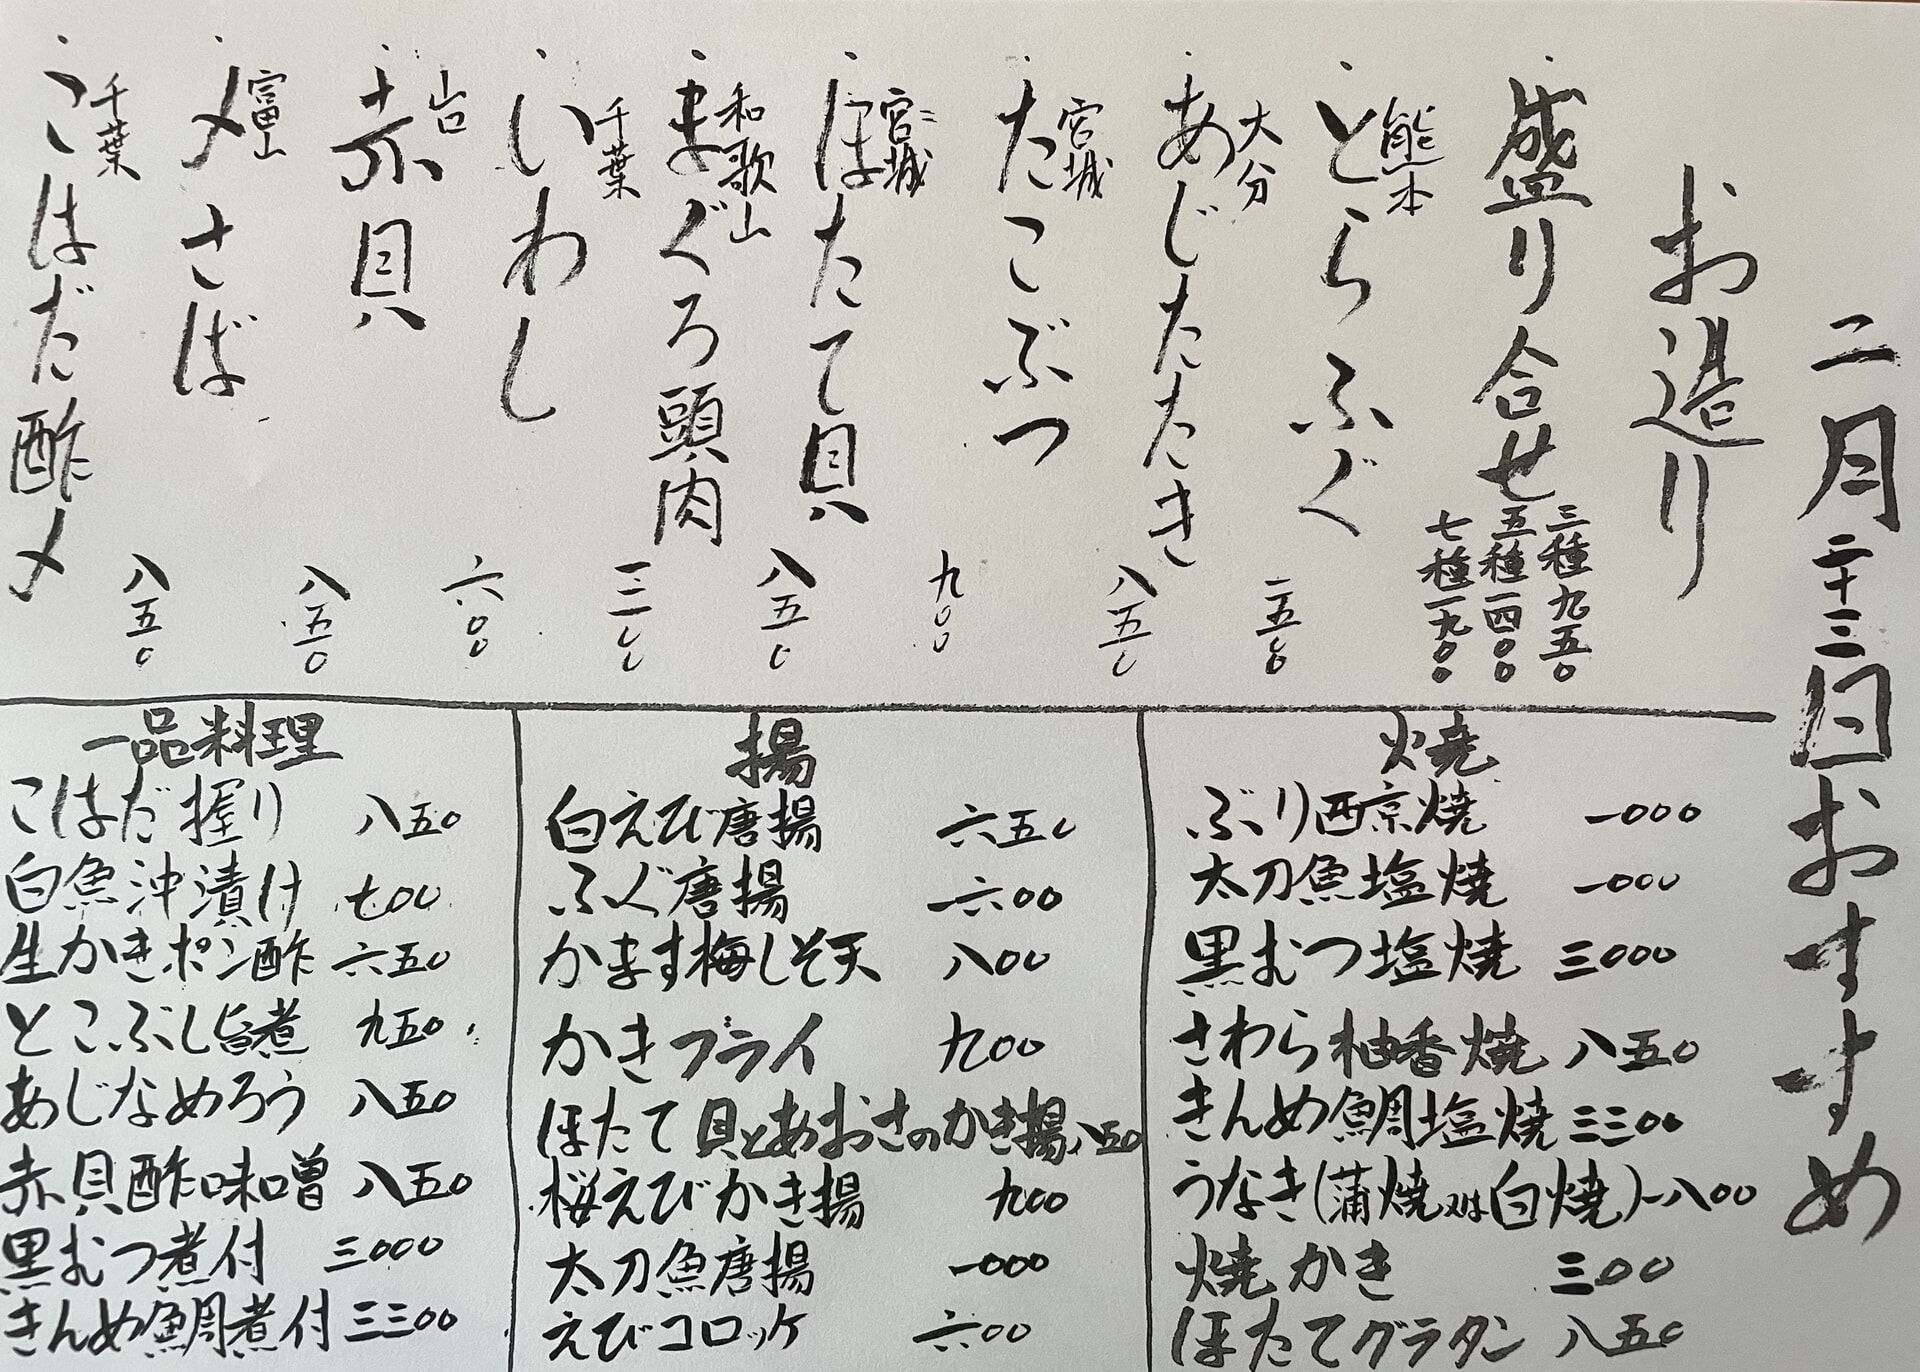 二月二十三日おすすめ
お造り
盛り合せ
三種九五〇
五種一四〇〇
七種一九〇〇
熊本
とらふぐ
一五〇〇
大分
あじたたき
八五〇
宮城
たこぶつ
九〇〇
宮城
ほたて貝
八五〇
和歌山
まぐろ頭肉
千葉
いわし
六〇〇
山口
赤貝
八五〇
富山
〆さば
八五〇
千葉
こはだ酢〆
焼
ぶり西京焼 一〇〇〇
太刀魚塩焼 一〇〇〇
黒むつ塩焼 三〇〇〇
さわら柚香焼 八五〇
きんめ鯛塩焼 三三〇〇
うなき(蒲焼又は白焼)一八〇〇
焼かき 三〇〇
ほたてグラタン 八五〇
揚
白えび唐揚 六五〇
ふぐ唐揚 一六〇〇
かます梅しそ天 八〇〇
かきフライ 九〇〇
ほたて貝とあおさのかき揚 八五〇
桜えびかき揚 九〇〇
太刀魚唐揚 一〇〇〇
えびコロッケ 六〇〇
一品料理
こはだ握り 八五〇
白魚沖漬け 七〇〇
生かきポン酢 六五〇
とこぶし旨煮 九五〇
あじなめろう 八五〇
赤貝酢味噌 八五〇
黒むつ煮付 三〇〇〇
きんめ鯛煮付 三三〇〇